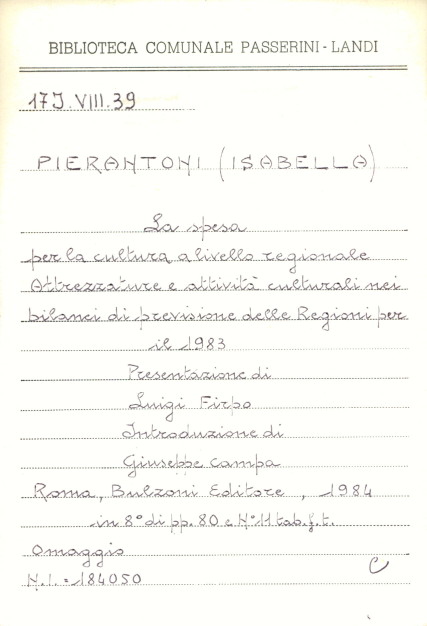 BIBLIOTECA COMUNALE PASSERINI - LANDI
17J.VIII.39
PIERANTONI (ISABELLA)
La spesa
per la cultura a livello regionale
Attrezzature e attività culturali nei
bilanci di previsione delle Regioni per
il 1983
Presentazione di
Luigi Firpo
Introduzione di
Giuseppe Campa
Roma, Bulzoni Editore, 1984
in 8° di pp. 80 e N° 11 tab. f. t.
Omaggio
C
N.I. = 184050